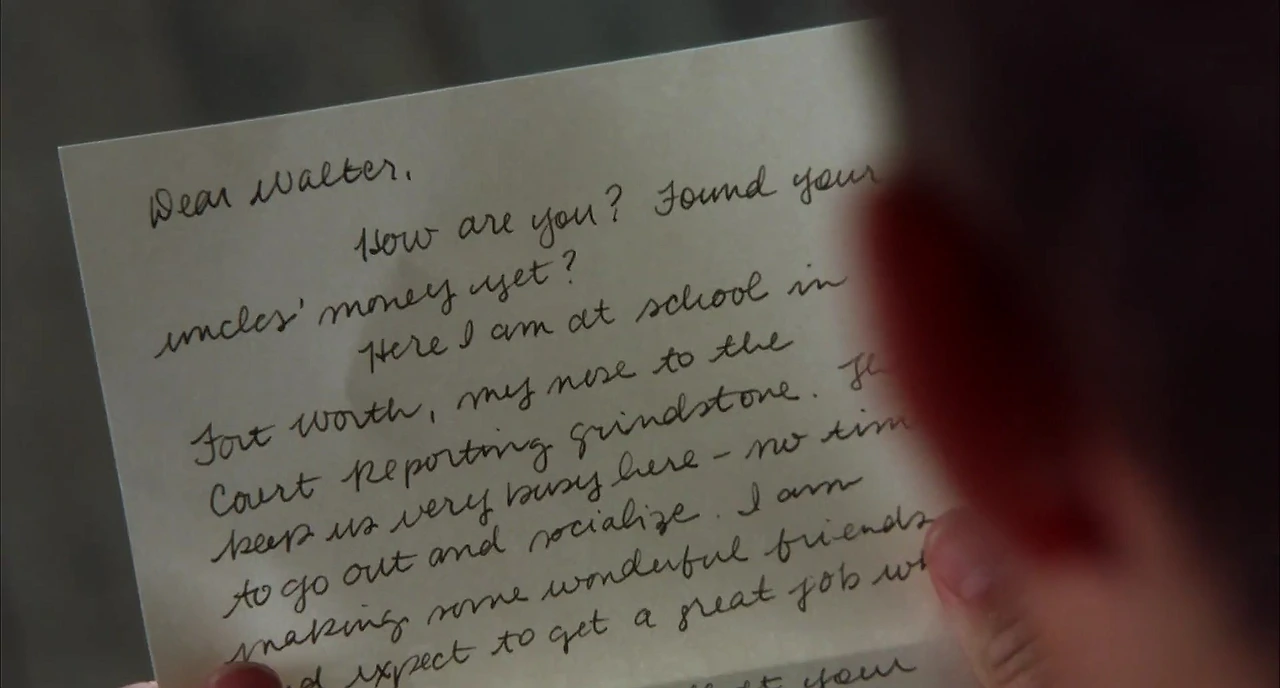 Dear Walter,
How are you? Found your
uncles' money yet?
Here I am at school in
Fort Worth, my nose to the
Court Reporting grindstone.
keep us very busy here - no
to go out and socialize. I am
making some wonderful friends
expect to get a great job
your